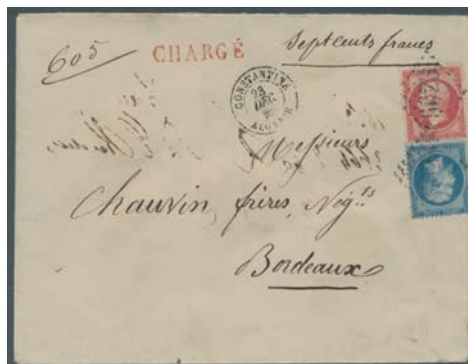 605
CHARGÉ
Sept cents francs
CONSTANTINE
23
DEC.
ALGERIE
Messieurs
Chauvin, frères, Négts
Bordeaux